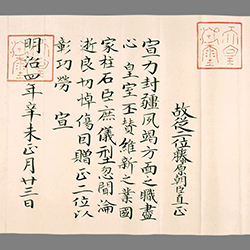 故從二位藤原朝臣直正
宣力封疆夙竭方面之職盡
心 皇室丕賛維新之業國
家柱石臣庶儀型忽聞淪
逝良切悼傷因贈正二位以
彰功勞 宣
明治四年辛未正月廿三日